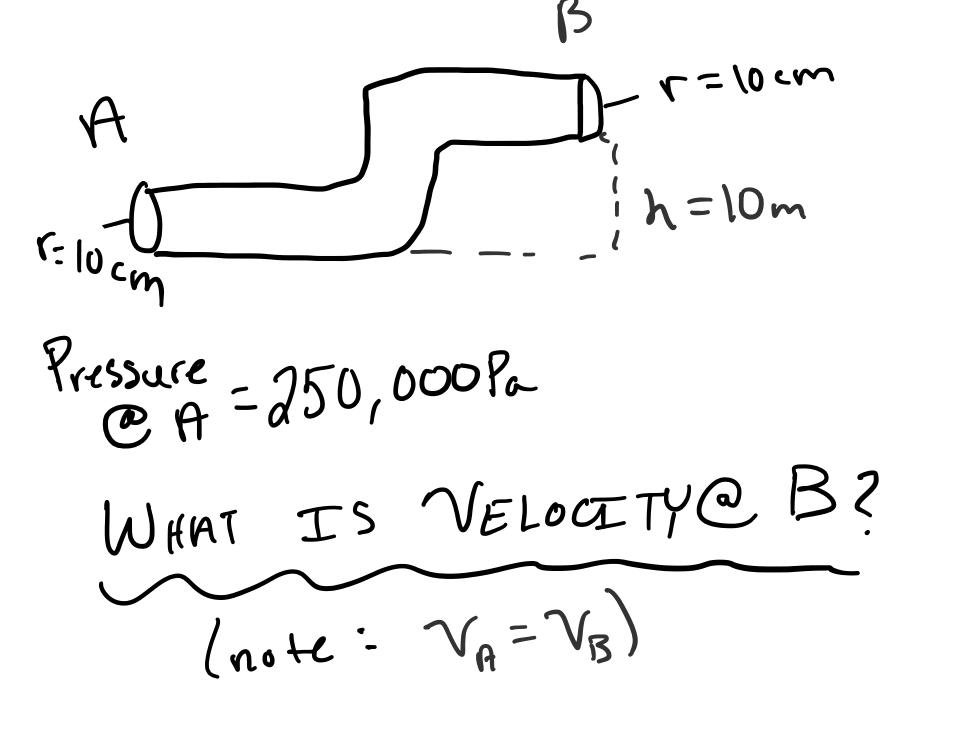 B
r=10cm
A
h=10m
r=10cm
Pressure
@ A =250,000Pa
WHAT IS VELOCITY@ B?
(note: VA=VB)